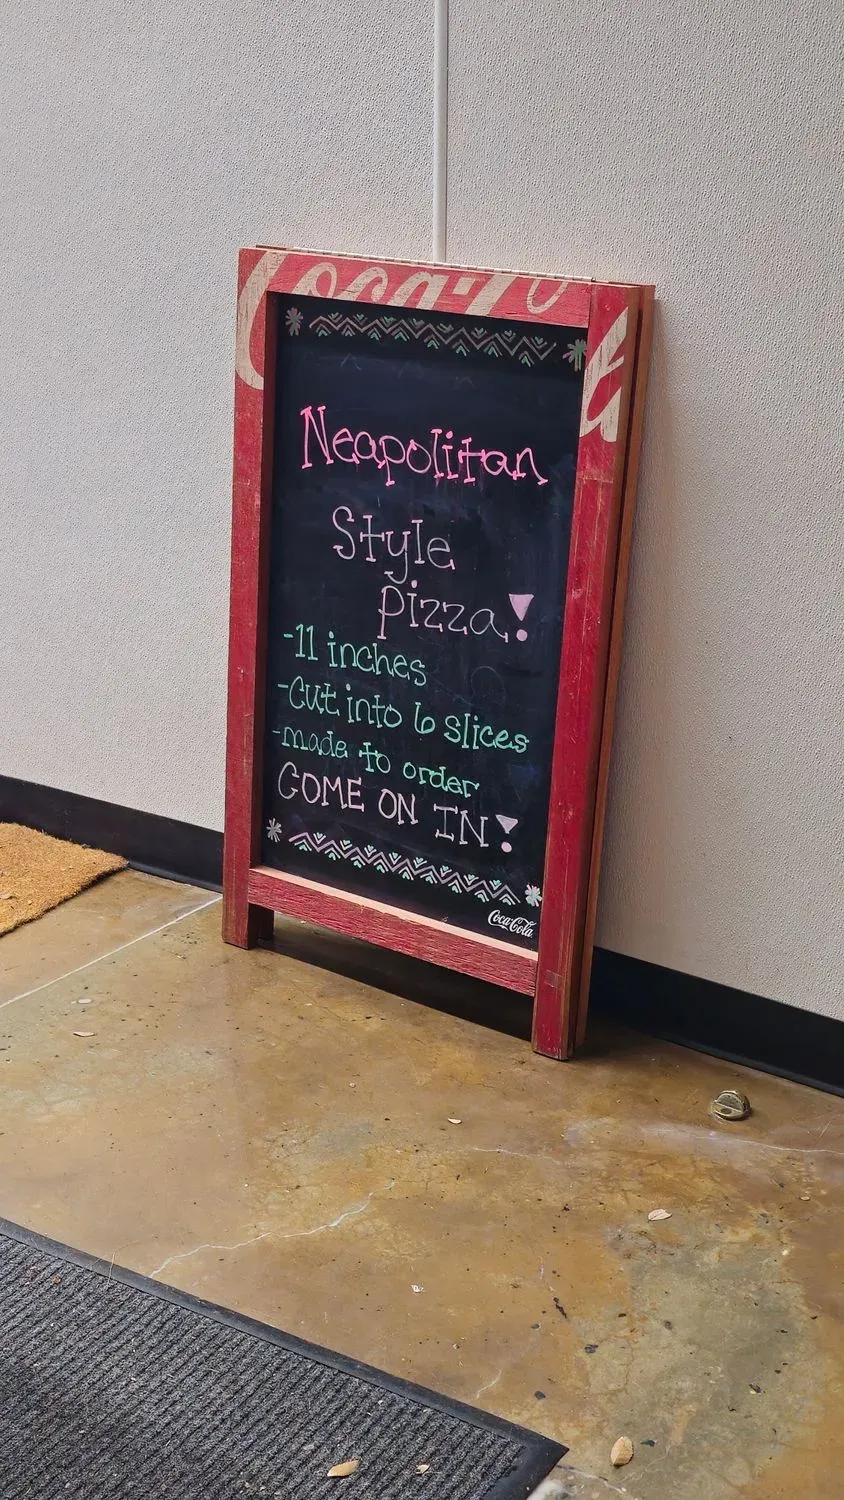 Coca-Co
Neapolitan
Style
pizza!
-11 inches
-Cut into 6 slices
-made to order
COME ON IN!
Coca-Cola